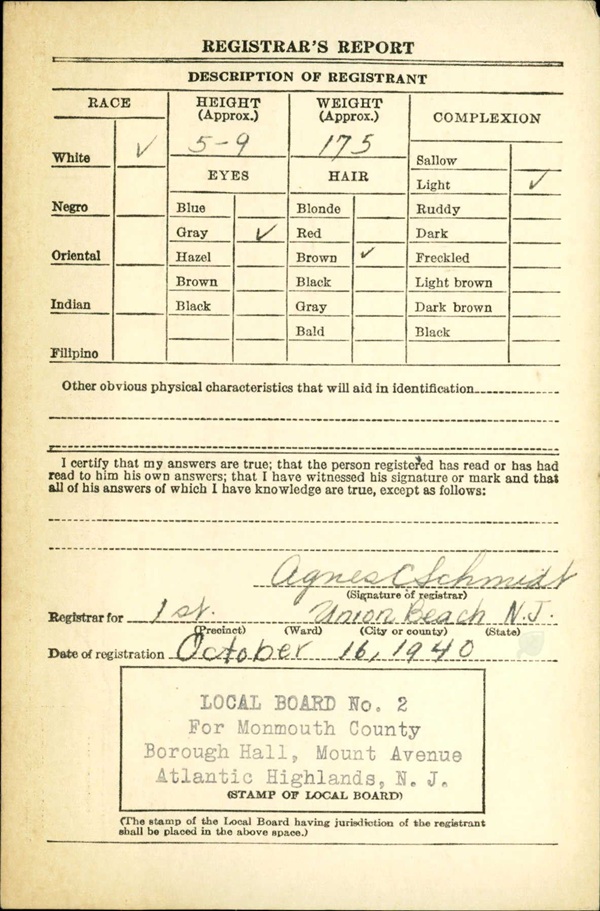 REGISTRAR'S REPORT
DESCRIPTION OF REGISTRANT
RACE
HEIGHT
(Approx.)
WEIGHT
(Approx.)
COMPLEXION
5-9
175
White ✓
Sallow
EYES
HAIR
Light ✓
Negro
Blue
Blonde
Ruddy
Gray ✓
Red
Dark
Oriental
Hazel
Brown ✓
Freckled
Brown
Black
Light brown
Indian
Black
Gray
Dark brown
Bald
Black
Filipino
Other obvious physical characteristics that will aid in identification
I certify that my answers are true; that the person registered has read or has had
read to him his own answers; that I have witnessed his signature or mark and that
all of his answers of which I have knowledge are true, except as follows:
Agnes C Schmidt
(Signature of registrar)
Registrar for 1 st. Union Beach N.J.
(Precinct) (Ward) (City or county) (State)
Date of registration October 16, 1940
LOCAL BOARD No. 2
For Monmouth County
Borough Hall, Mount Avenue
Atlantic Highlands, N. J.
(STAMP OF LOCAL BOARD)
(The stamp of the Local Board having jurisdiction of the registrant
shall be placed in the above space.)